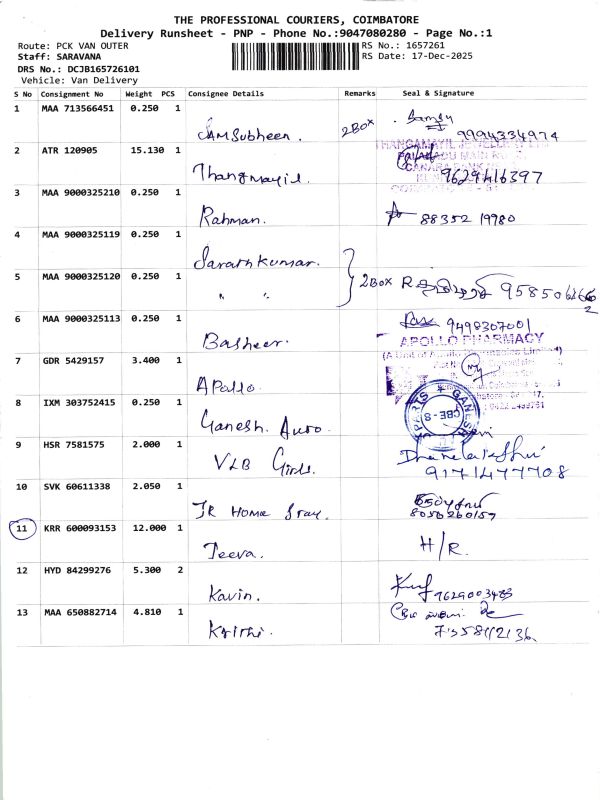 THE PROFESSIONAL COURIERS, COIMBATORE
Delivery Runsheet - PNP - Phone No.:9047080280 - Page No.:1
Route: PCK VAN OUTER
RS No.: 1657261
Staff: SARAVANA
RS Date: 17-Dec-2025
DRS No.: DCJB165726101
Vehicle: Van Delivery
S No Consignment No Weight PCS Consignee Details Remarks Seal & Signature
1 MAA 713566451 0.250 1 SAMSubheen. 2BOX Samsu 9994334974
2 ATR 120905 15.130 1 Thangmayil. 9629416397
3 MAA 9000325210 0.250 1 Rahman. 88352 19980
4 MAA 9000325119 0.250 1 Sarathkumar.
5 MAA 9000325120 0.250 1 " " 2BOX
6 MAA 9000325113 0.250 1 Basheer. 9498307001
7 GDR 5429157 3.400 1 Apollo. APOLLO PHARMACY
8 IXM 303752415 0.250 1 Ganesh. Auto. GANESH PARTS CBE-8
9 HSR 7581575 2.000 1 VLB Girls. 9171477708
10 SVK 60611338 2.050 1 JR Home Stay. 8056260157
11 KRR 600093153 12.000 1 Jeeva. H/R.
12 HYD 84299276 5.300 2 Kavin. 9629003483
13 MAA 650882714 4.810 1 Krithi.